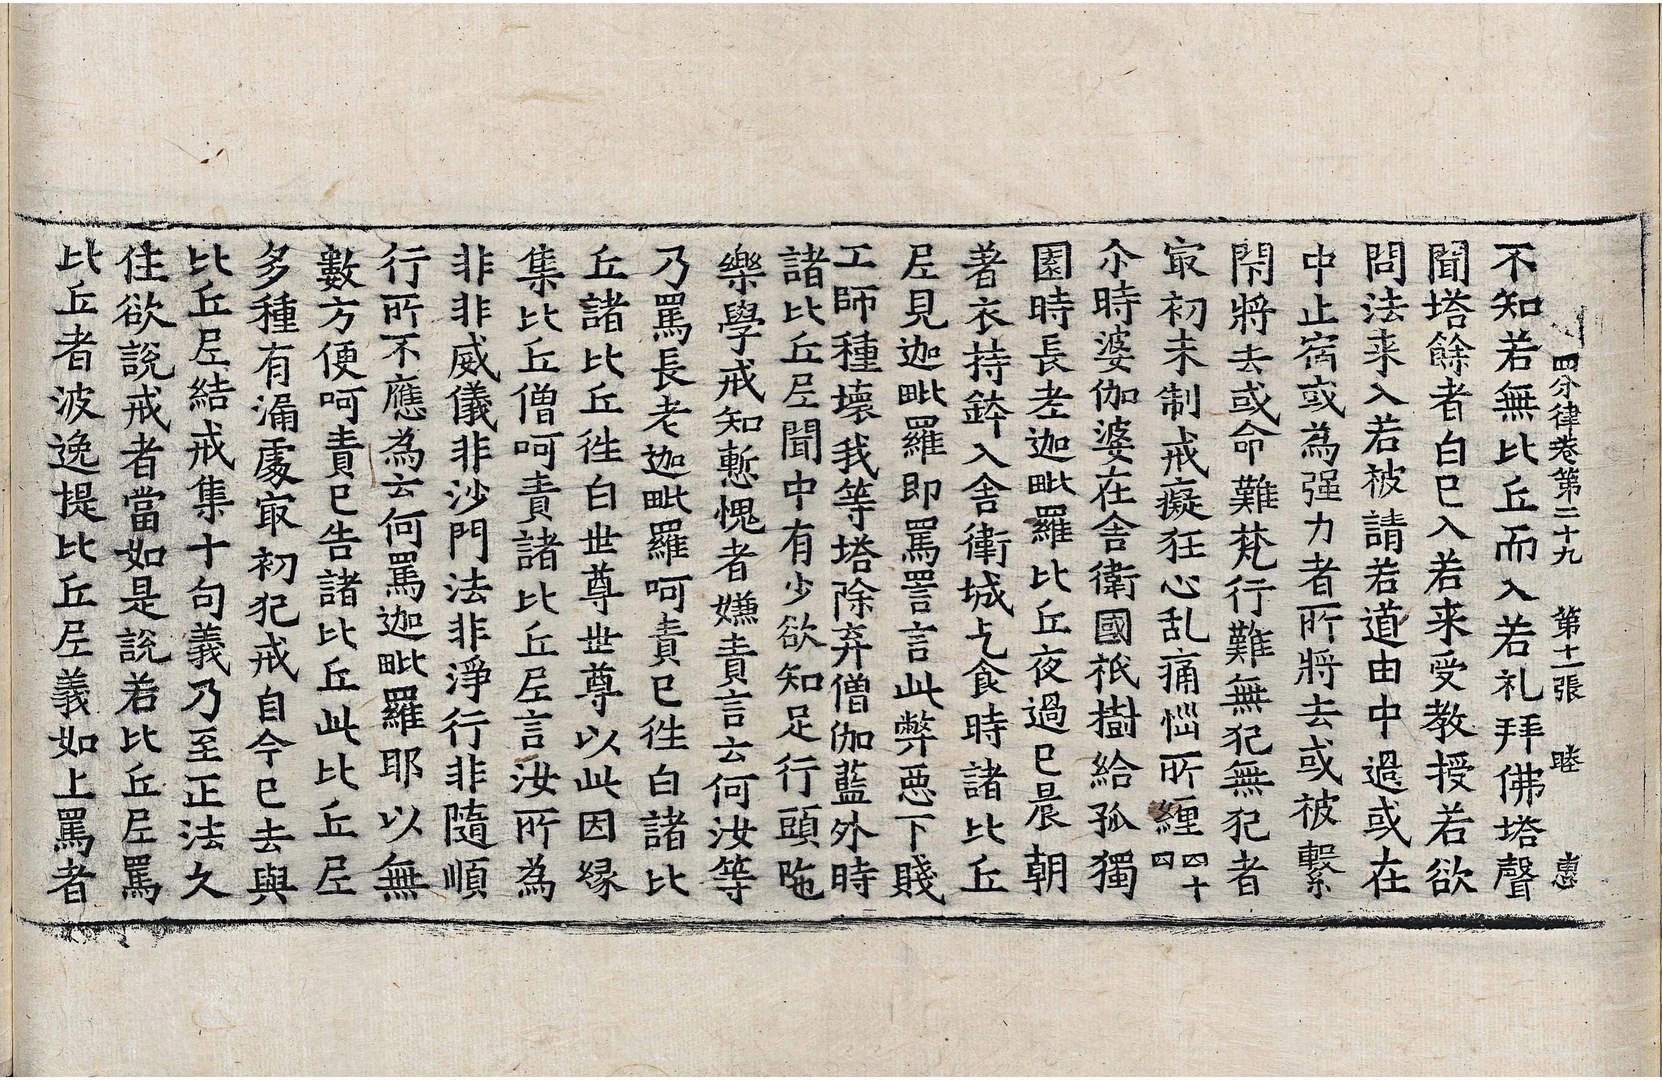 四分律巻第二十九 第十一張 睦 惠
不知若無比丘而入若礼拜佛塔聲
聞塔餘者白已入若来受教授若欲
問法来入若被請若道由中過或在
中止宿或為强力者所將去或被繫
閇將去或命難梵行難無犯無犯者
㝡初未制戒癡狂心乱痛惱所纏四十四
尒時婆伽婆在舍衛國祇樹給孤獨
園時長老迦毗羅比丘夜過已晨朝
著衣持鉢入舍衛城乞食時諸比丘
尼見迦毗羅即罵詈言此弊惡下賤
工師種壞我等塔除弃僧伽藍外時
諸比丘尼聞中有少欲知足行頭陁
樂學戒知慙愧者嫌責言云何汝等
乃罵長老迦毗羅呵責已徃白諸比
丘諸比丘徃白世尊世尊以此因緣
集比丘僧呵責諸比丘尼言汝所為
非非威儀非沙門法非淨行非隨順
行所不應為云何罵迦毗羅耶以無
數方便呵責已告諸比丘此比丘尼
多種有漏處㝡初犯戒自今已去與
比丘尼結戒集十句義乃至正法久
住欲說戒者當如是說若比丘尼罵
比丘者波逸提比丘尼義如上罵者